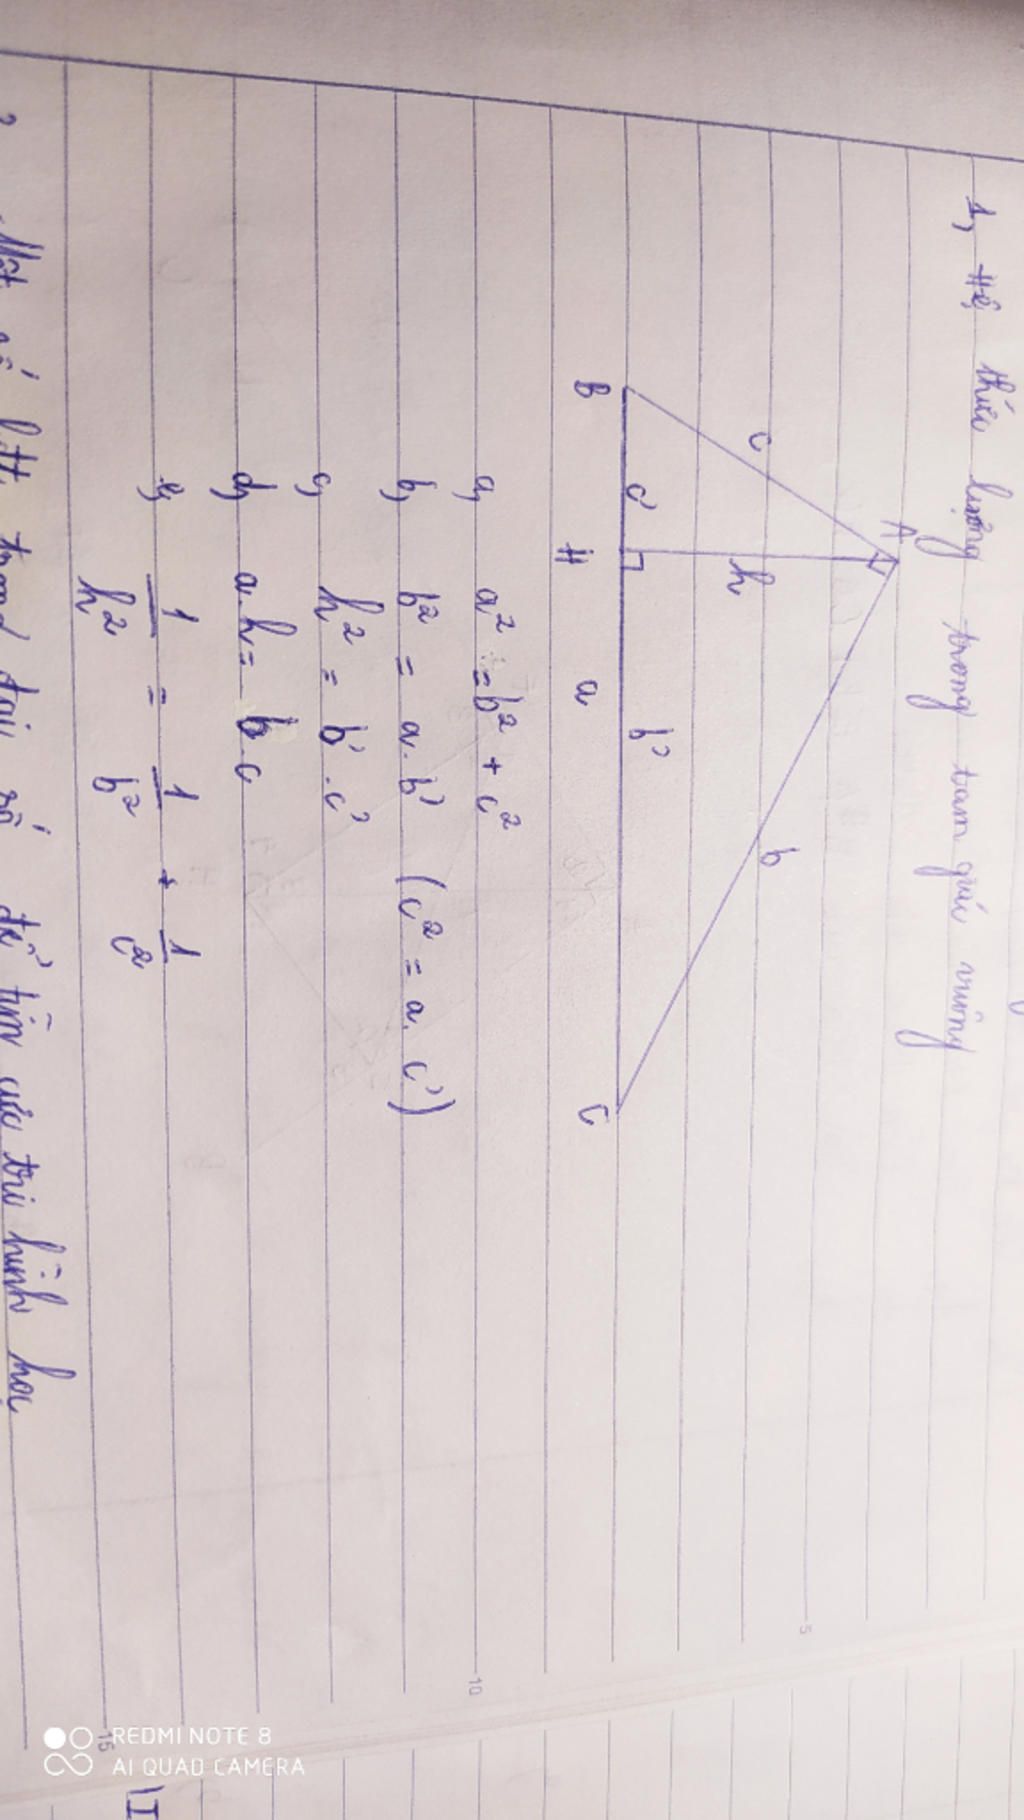 1, Hệ thức lượng trong tam giác vuông
A
c
h
b
c'
b'
B
H
a
C
a, a² = b² + c²
b, b² = a.b' (c² = a.c')
c, h² = b'.c'
d, a.h = b.c
e, 1/h² = 1/b² + 1/c²
2, Một số bđt trong đại số để tìm cực trị hình học
5
10
15
REDMI NOTE 8
AI QUAD CAMERA